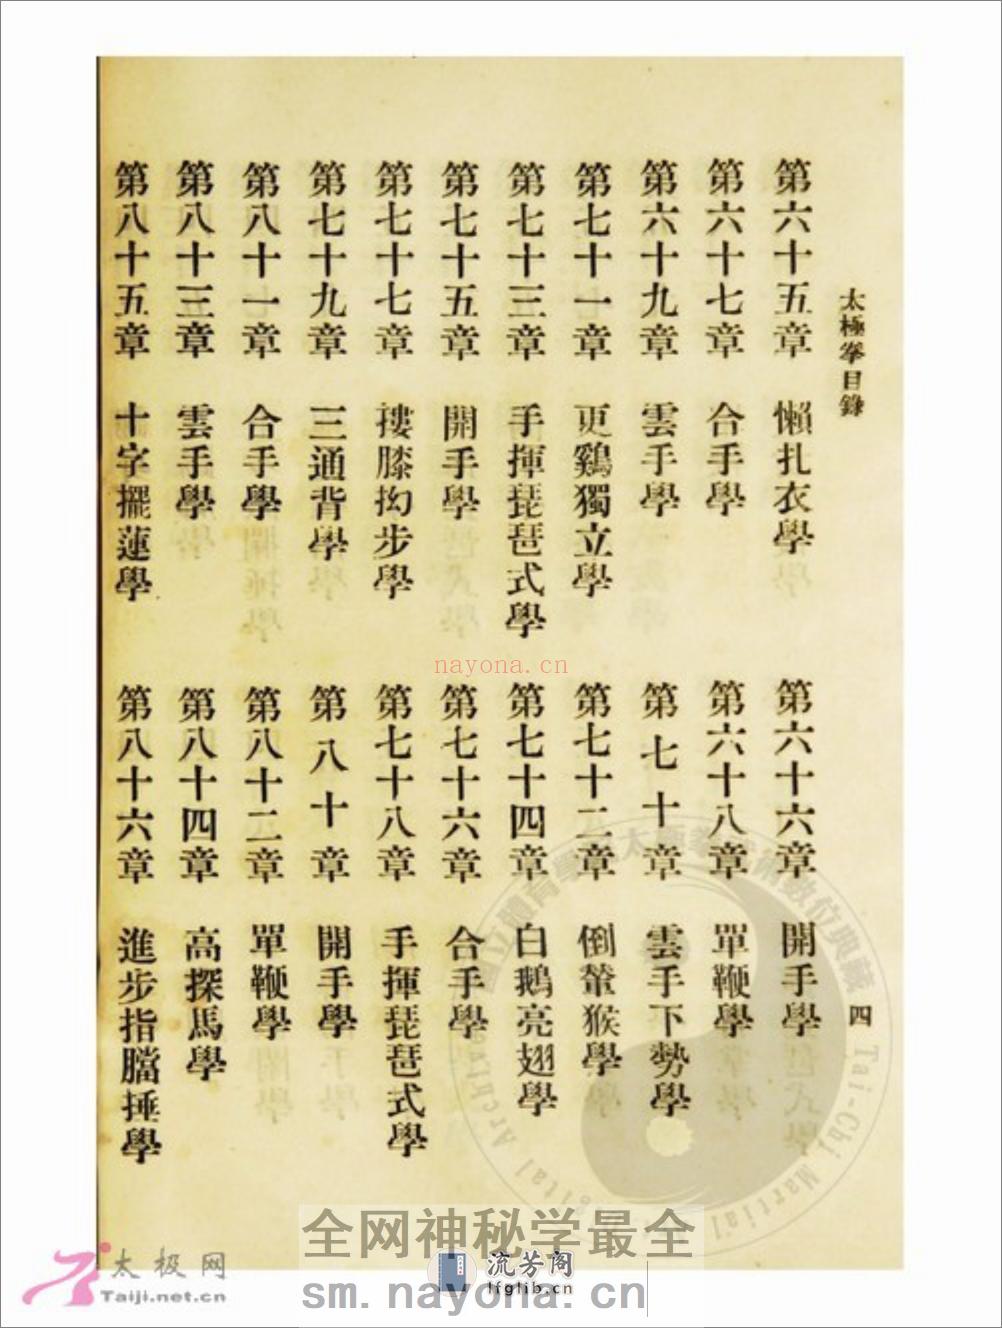 太極拳目錄
四
第六十五章 懶扎衣學
第六十六章 開手學
第六十七章 合手學
第六十八章 單鞭學
第六十九章 雲手學
第七十章 雲手下勢學
第七十一章 更鷄獨立學
第七十二章 倒輦猴學
第七十三章 手揮琵琶式學
第七十四章 白鵝亮翅學
第七十五章 開手學
第七十六章 合手學
第七十七章 摟膝拗步學
第七十八章 手揮琵琶式學
第七十九章 三通背學
第八十章 開手學
第八十一章 合手學
第八十二章 單鞭學
第八十三章 雲手學
第八十四章 高探馬學
第八十五章 十字擺蓮學
第八十六章 進步指膛捶學
nayona.cn
全网神秘学最全
sm.nayona.cn
流芳阁
lfglib.cn
太极网
Taiji.net.cn